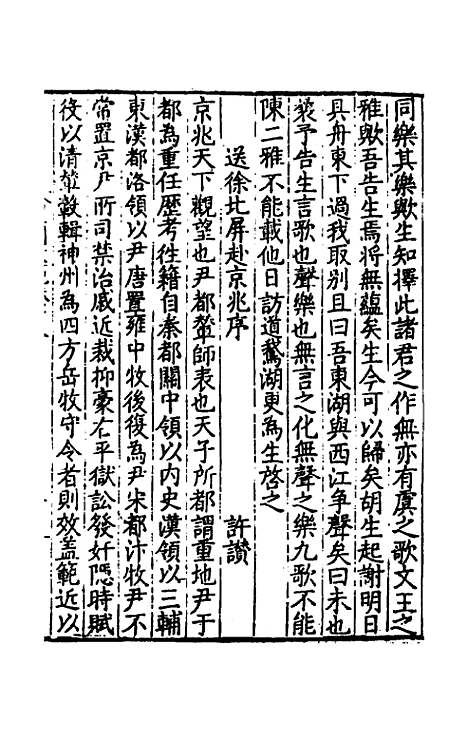 同樂其樂歟生知擇此諸君之作無亦有虞之歌文王之
雅歟吾告生焉將無蘊矣生今可以歸矣胡生起謝明日
具舟東下過我取別且曰吾東湖與西江争聲矣曰未也
裳予告生言歌也聲樂也無言之化無聲之樂九歌不能
陳二雅不能載他日訪道鵞湖更為生啓之
送徐北屏赴京兆序
許讚
京兆天下觀望也尹都輦師表也天子所都謂重地尹于
都為重任歷考徃籍自秦都關中領以内史漢領以三輔
東漢都洛領以尹唐置雍中牧後復為尹宋都汴牧尹不
常置京尹所司禁治戚近裁抑豪右平獄訟發奸慝時賦
役以清輦轂輯神州為四方岳牧守令者則效盖範近以